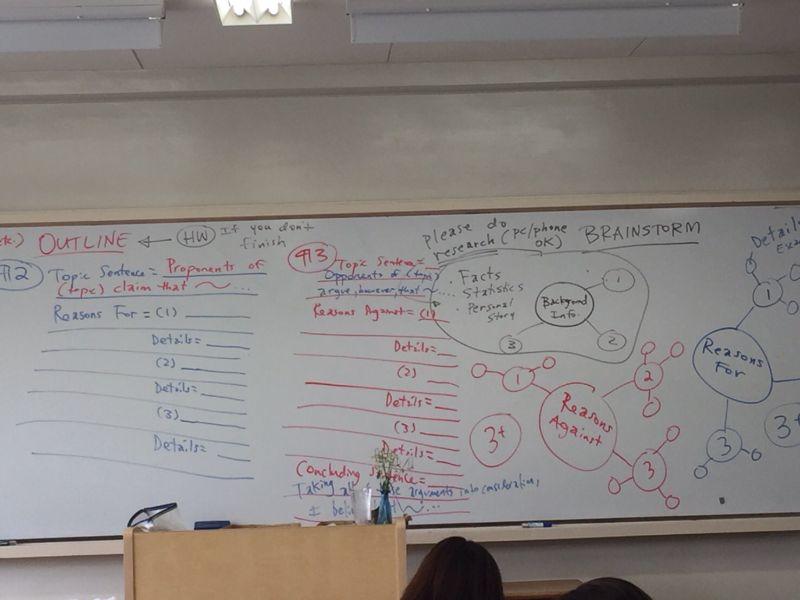 OUTLINE ← HW If you don't
finish
¶2 Topic Sentence = Proponents of
(topic) claim that ~ ...
Reasons For = (1)
Details =
(2)
Details =
(3)
Details =
¶3 Topic Sentence =
Opponents of (topic)
argue, however, that ~ ...
Reasons Against = (1)
Details =
(2)
Details =
(3)
Details =
Concluding Sentence =
Taking all arguments into consideration,
I ~ ...
Please do
research (pc/phone
OK)
BRAINSTORM
• Facts
Statistics
• Personal
Story
Background
Info.
1
2
3
Reasons
Against
1
2
3
3+
Details
Reasons
For
1
3
3+